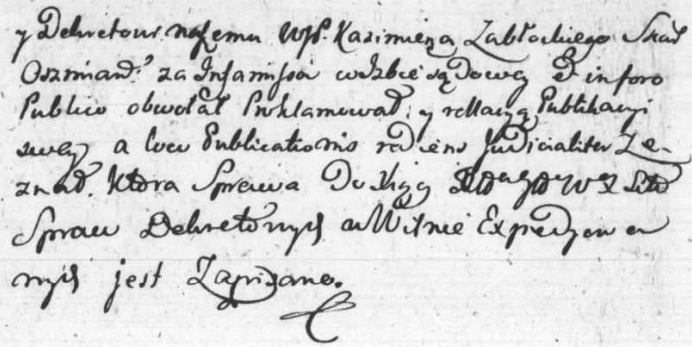 y Dekretowi naszemu WJP. Kazimierza Zabłockiego Skar
Oszmian. za Infamissa w Izbie sądowey Et in foro
Publico obwołał Proklamował y rellacyą Publikacyi
swey a loco Publicationis rediens Judicialiter Ze-
znał. Ktora Sprawa Do Xiąg
Spraw Dekretowych w Wilnie Expedyowa
nych jest Zapisana.